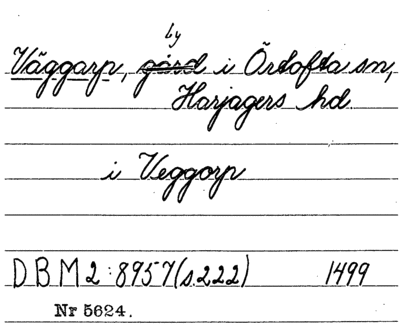 by
Väggarp, gård i Örtofta sn,
Harjagers hd.
i Veggorp
DBM 2:8957 (s.222) 1499
Nr 5624.